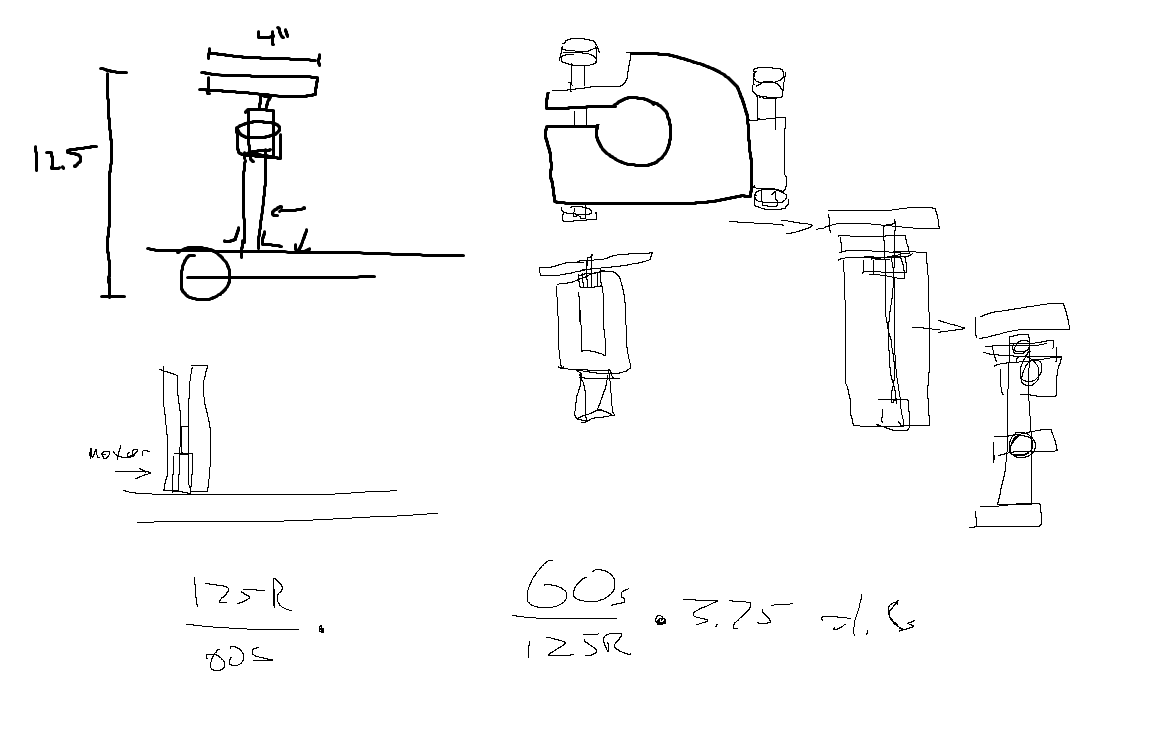 4"
12.5
motor
125R
60s
60s
125R
• 3.75 = 1.8